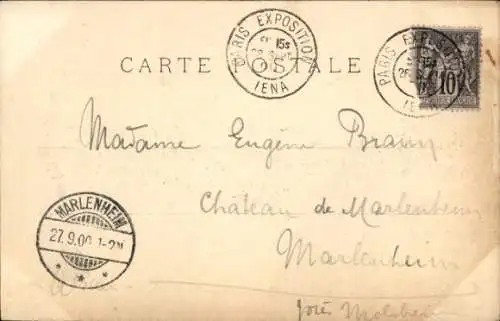 CARTE POSTALE
PARIS EXPOSITION
IENA
PARIS EXPOSITION
10
Madame Eugène Braun
Château de Marlenheim
Marlenheim
près Molsheim
MARLENHEIM
27.9.00.1-2N